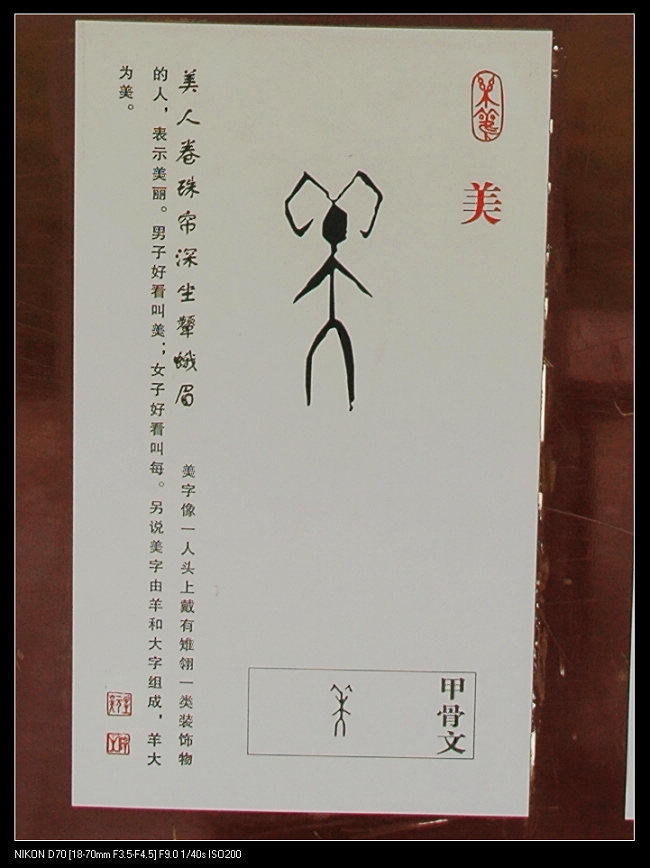 美
甲骨文
美人卷珠帘深坐颦蛾眉
美字像一人头上戴有雉翎一类装饰物
的人，表示美丽。男子好看叫美；女子好看叫每。另说美字由羊和大字组成，羊大
为美。
NIKON D70 [18-70mm F3.5-F4.5] F9.0 1/40s ISO200